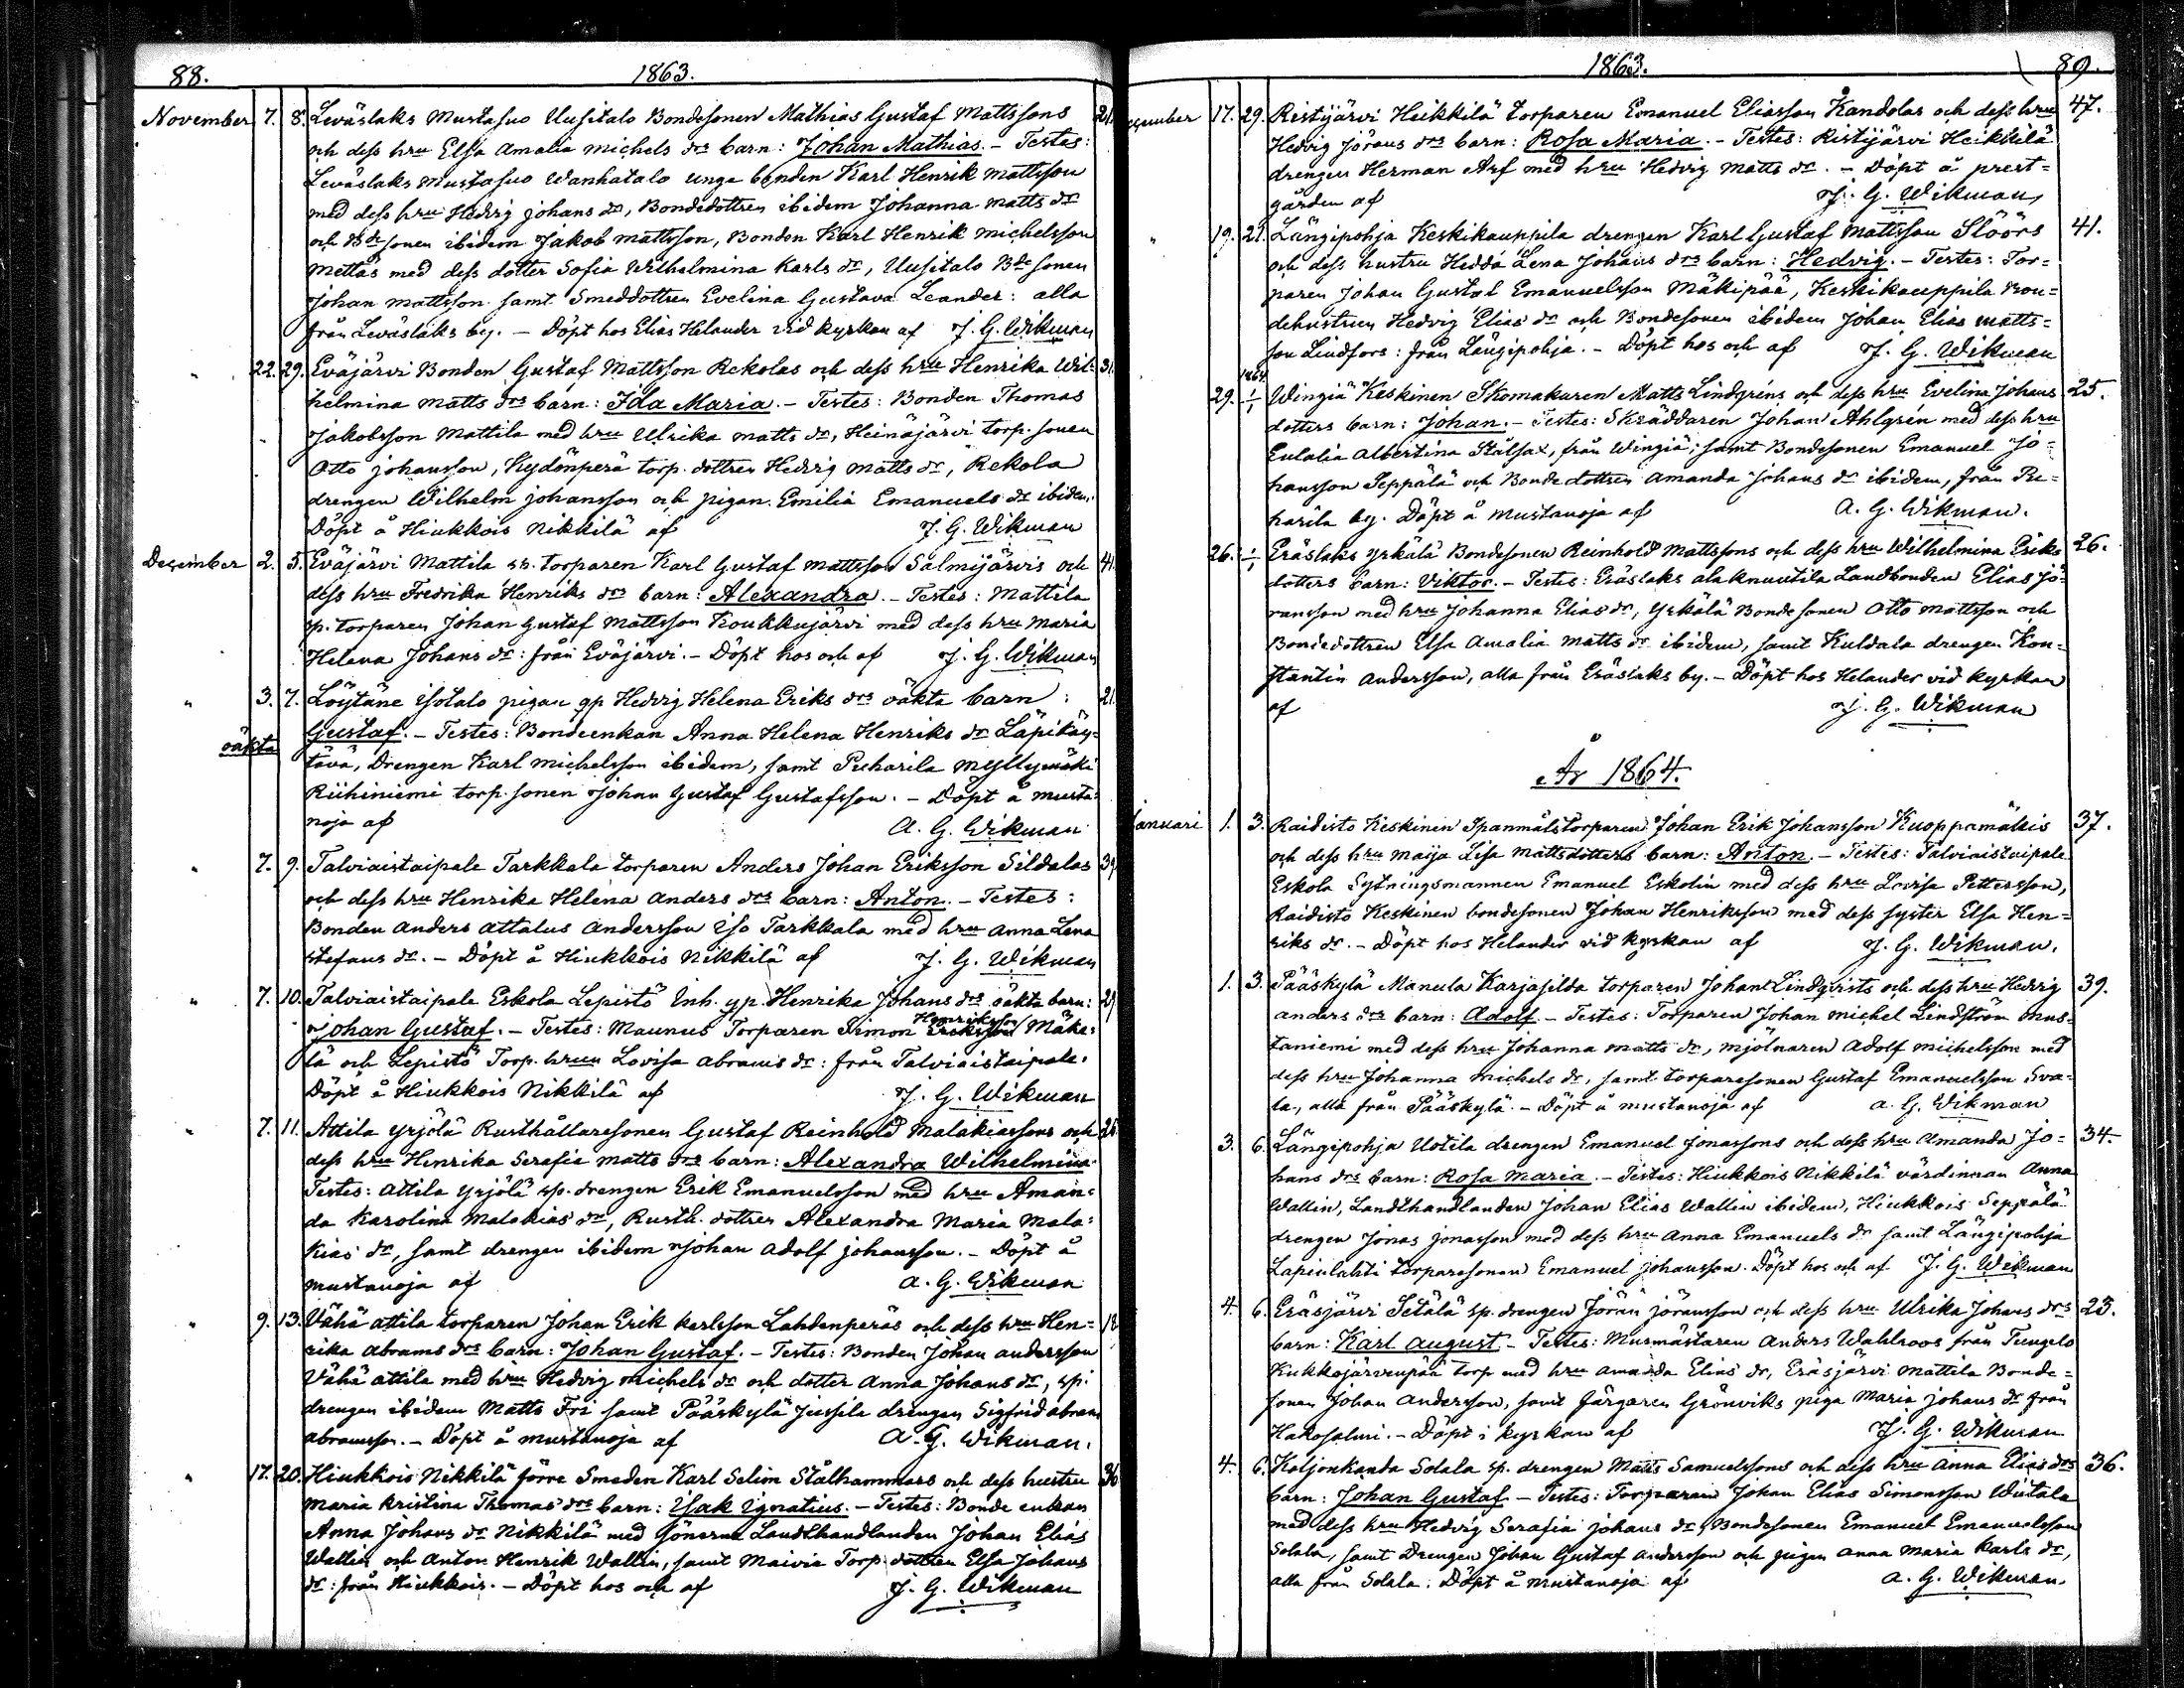 88. 1863.
November 7. 8. Leväslaks Mustasuo Uusitalo Bondesonen Mathias Gustaf Mattssons 21.
och dess hru Elsa Amalia Michels drs barn: Johan Mathias. - Testes:
Leväslaks Mustasuo Wanhatalo unga bonden Karl Henrik Mattsson
med dess hru Hedvig Johans dr, Bondedottren ibidem Johanna Matts dr
och Bdesonen ibidem Jakob Mattsson, Bonden Karl Henrik Michelsson
Mettäs med dess dotter Sofia Wilhelmina Karls dr, Uusitalo Bdesonen
Johan Mattsson samt Smeddottren Evelina Gustava Leander: alla
från Leväslaks by. - Döpt hos Elias Helander vid kyrkan af J. G. Wikman
" 22. 29. Eväjärvi Bonden Gustaf Mattsson Rekolas och dess hru Henrika Wil= 31.
helmina Matts drs barn: Ida Maria. - Testes: Bonden Thomas
Jakobsson Mattila med hru Ulrika Matts dr, Heinäjärvi torp. sonen
Otto Johansson, Kydönperä torp. dottren Hedvig Matts dr, Rekola
drengen Wilhelm Johansson och pigan Emilia Emanuels dr ibidem.
Döpt å Hiukkois Nikkilä af J. G. Wikman
December 2. 5. Eväjärvi Mattila sp. torparen Karl Gustaf Mattsson Salmijärvis och 41.
dess hru Fredrika Henriks drs barn: Alexandra. - Testes: Mattila
sp. torparen Johan Gustaf Mattsson Koukkujärvi med dess hru Maria
Helena Johans dr: från Eväjärvi. - Döpt hos och af J. G. Wikman
" 3. 7. Löytäne Isotalo pigan gp Hedvig Helena Eriks drs oäkta barn: 21.
oäkta Gustaf. - Testes: Bondeenkan Anna Helena Henriks dr Läpikäy=
tävä, Drengen Karl Michelsson ibidem, samt Puharila Myllymäki
Riihiniemi torp. sonen Johan Gustaf Gustafsson. - Döpt å Musta=
noja af A. G. Wikman
" 7. 9. Talviaistaipale Tarkkala torparen Anders Johan Eriksson Sildalas 39
och dess hru Henrika Helena Anders drs barn: Anton. - Testes:
Bonden Anders Attalus Andersson Iso Tarkkala med hru Anna Lena
Stefans dr. - Döpt å Hiukkois Nikkilä af J. G. Wikman
" 7. 10. Talviaistaipale Eskola Lepistö Inh. gp. Henrika Johans drs oäkta barn: 29
Johan Gustaf. - Testes: Maunus Torparen Simon Eriksson Henriksson Mäke=
lä och Lepistö Torp. hrun Lovisa Abrams dr: från Talviaistaipale.
Döpt å Hiukkois Nikkilä af J. G. Wikman
" 7. 11. Attila Yrjölä Rusthållaresonen Gustaf Reinhold Malakiassons och 25
dess hru Henrika Serafia Matts drs barn: Alexandra Wilhelmina.
Testes: Attila Yrjölä sp. drengen Erik Emanuelsson med hru Aman=
da Karolina Malakias dr, Rusth. dottren Alexandra Maria Mala=
kias dr, samt drengen ibidem Johan Adolf Johansson. - Döpt å
Mustanoja af A. G. Wikman
" 9. 13. Vähä Attila torparen Johan Erik Karlsson Lahdenperäs och dess hru Hen= 18
rika Abrams drs barn: Johan Gustaf. - Testes: Bonden Johan Andersson
Vähä Attila med hru Hedvig Michels dr och dotter Anna Johans dr, sp.
drengen ibidem Matts Fri samt Pääskylä Jussila drengen Sigfrid Abram
Abramsson. - Döpt å Mustanoja af A. G. Wikman.
" 17. 20. Hiukkois Nikkilä förre Smeden Karl Selim Stålhammars och dess hustru 36
Maria Kristina Thomas drs barn: Isak Ignatius. - Testes: Bonde enkan
Anna Johans dr Nikkilä med sönerna Landthandlanden Johan Elias
Wallin och Anton Henrik Wallin, samt Maivia Torp. dottren Elsa Johans
dr: från Hiukkois. - Döpt hos och af J. G. Wikman
1863. 89.
December 17. 29. Ristijärvi Heikkilä torparen Emanuel Eliasson Kandolas och dess hru 47.
Hedvig Jörans drs barn: Rosa Maria. - Testes: Ristijärvi Heikkilä
drengen Herman Arf med hru Hedvig Matts dr. - Döpt å prest=
gården af J. G. Wikman,
" 19. 21. Längipohja Keskikauppila drengen Karl Gustaf Mattsson Slöörs 41.
och dess hustru Hedda Lena Johans drs barn: Hedvig. - Testes: Tor=
paren Johan Gustaf Emanuelsson Mäkipää, Keskikauppila Bon=
dehustrun Hedvig Elias dr och Bondesonen ibidem Johan Elias Matts=
son Lindfors: från Längipohja. - Döpt hos och af J. G. Wikman
1864.
29. 1/1 Wingiä Keskinen Skomakaren Matts Lindgréns och dess hru Evelina Johans 25.
dotters barn: Johan. - Testes: Skräddaren Johan Ahlgrén med dess hru
Eulalia Albertina Stålsax, från Wingiä; samt Bondesonen Emanuel Jo=
hansson Seppälä och Bondedottren Amanda Johans dr ibidem, från Pu=
harila by. Döpt å Mustanoja af A. G. Wikman.
26. 1/1 Eräslaks Yrkälä Bondesonen Reinhold Mattssons och dess hru Wilhelmina Eriks 26.
dotters barn: Viktor. - Testes: Eräslaks Alaknuutila Landbonden Elias Jö=
ransson med hru Johanna Elias dr, Yrkälä Bondesonen Otto Mattsson och
Bondedottren Elsa Amalia Matts dr ibidem, samt Kuldala drengen Kon=
stantin Andersson, alla från Eräslaks by. - Döpt hos Helander vid kyrkan
af J. G. Wikman
År 1864.
Januari 1. 3. Raidisto Keskinen Spanmålstorparen Johan Erik Johansson Kuoppamäkis 37.
och dess hru Maija Lisa Mattsdotters barn: Anton. - Testes: Talviaistaipale
Eskola Sytningsmannen Emanuel Eskolin med dess hru Lovisa Pettersson,
Raidisto Keskinen bondesonen Johan Henriksson med dess syster Elsa Hen=
riks dr. - Döpt hos Helander vid kyrkan af J. G. Wikman.
1. 3. Pääskylä Manula Karjasilda torparen Johan Lindqvists och dess hru Hedvig 39.
Anders drs barn: Adolf - Testes: Torparen Johan Michel Lindström Mus=
taniemi med dess hru Johanna Matts dr, mjölnaren Adolf Michelsson med
dess hru Johanna Michels dr, samt torparesonen Gustaf Emanuelsson Sva=
la, alla från Pääskylä. - Döpt å Mustanoja af A. G. Wikman
3. 6. Längipohja Uotila drengen Emanuel Jonassons och dess hru Amanda Jo= 34.
hans drs barn: Rosa Maria. - Testes: Hiukkois Nikkilä värdinnan Anna
Wallin, Landthandlanden Johan Elias Wallin ibidem, Hiukkois Seppälä
drengen Jonas Jonasson med dess hru Anna Emanuels dr samt Längipohja
Lapinlahti torparesonen Emanuel Johansson. Döpt hos och af J. G. Wikman
4. 6. Eräsjärvi Setälä sp. drengen Jöran Jöransson och dess hru Ulrika Johans drs 23.
barn: Karl August. - Testes: Murmästaren Anders Wahlroos från Tungelo
Kukkojärvenpää torp med hru Amanda Elias dr, Eräsjärvi Mattila Bonde=
sonen Johan Andersson, samt Färgaren Grönviks piga Maria Johans dr från
Hakosalmi. - Döpt i kyrkan af J. G. Wikman
4. 6. Koljonkanda Solala sp. drengen Matts Samuelssons och dess hru Anna Elias drs 36.
barn: Johan Gustaf - Testes: Torparen Johan Elias Simonsson Wiitala
med dess hru Hedvig Serafia Johans dr, Bondesonen Emanuel Emanuelsson
Solala, samt Drengen Johan Gustaf Andersson och pigan Anna Maria Karls dr,
alla från Solala. Döpt å Mustanoja af A. G. Wikman.